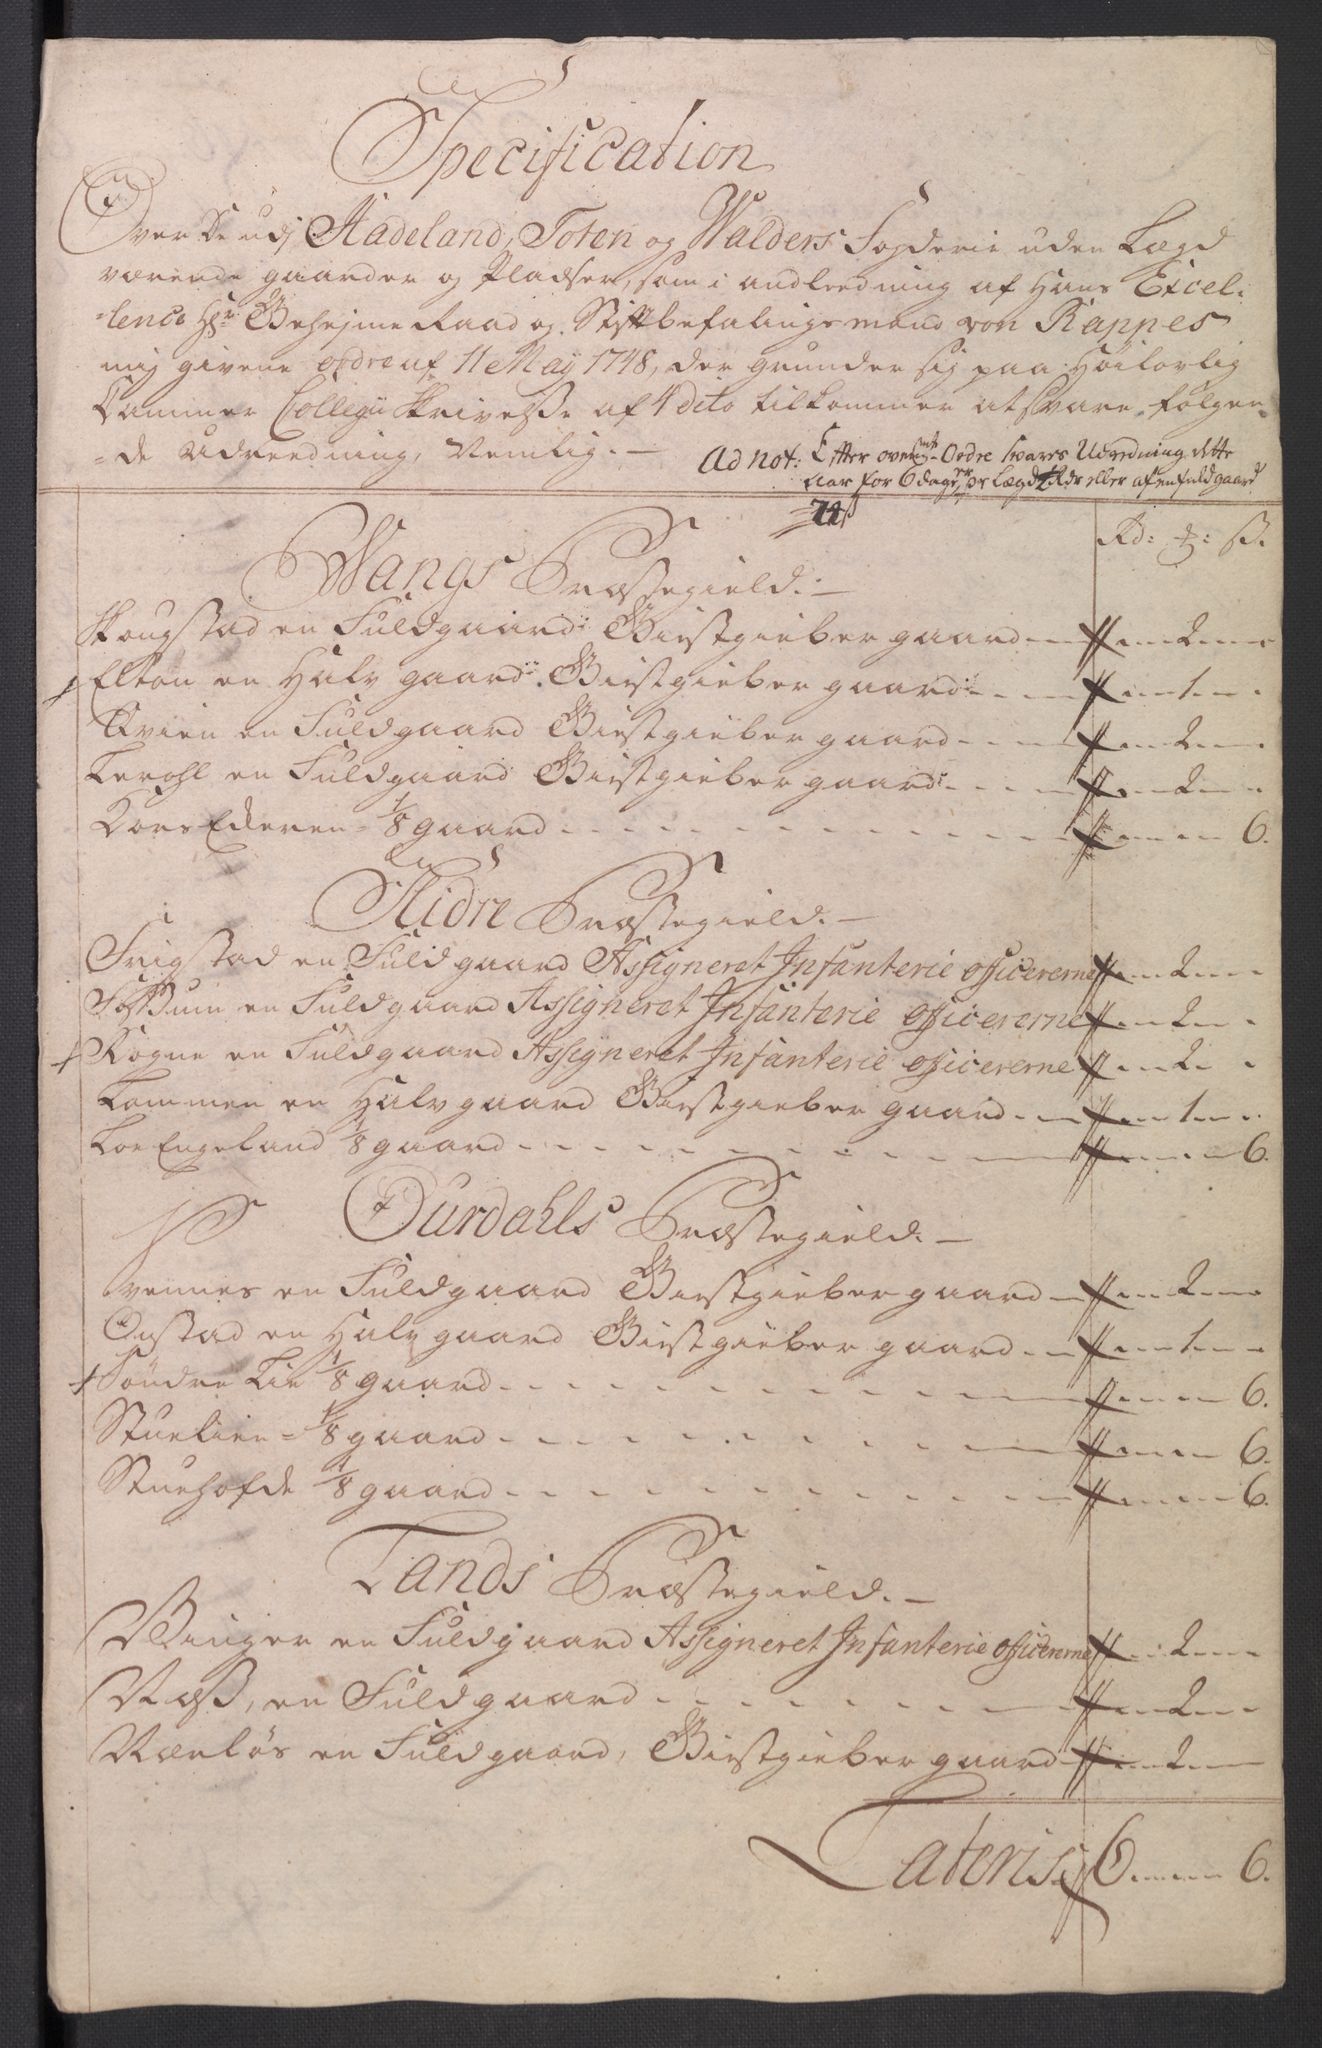 Specification
Over de udj Hadeland, Toten og Walders Fogderie uden Lægd
værende gaarder og Pladser, som i anleedning af Hans Excel-
lence Hr: Geheime Raad og Stiftbefalingsmand von Rappes
mig givene ordre af 11 May 1748, der grunder sig paa Høilovlig
Cammer Collegii Skrivelse af 4 dito tilkommer at svare følgen-
de Udreedning, Nemlig.-
Ad not: Efter ovenmte Ordre svares Udredning dette
Aar for 6 dage pr Lægd 1 Rdr eller af en fuldgaard
24 ß
Rd: : ß.
Wangs Præstegield.
Skougstad en Fuldgaard Giestgiebergaard - 2 -
Elton en Halv gaard Giestgiebergaard - 1 -
Qvien en Fuldgaard Giestgiebergaard - 2 -
Kerohl en Fuldgaard Giestgiebergaard - 2 -
Kors Ederen 1/8 gaard - 6.
Slidre Præstegield.
Frigstad en Fuldgaard Assigneret Infanterie officererne - 2 -
en Fuldgaard Assigneret Infanterie officererne - 2 -
Rogne en Fuldgaard Assigneret Infanterie officererne - 2 -
Lommen en Halvgaard Giestgieber gaard - 1 -
Engeland 1/8 gaard - 6.
Ourdahls Præstegield.
vennes en Fuldgaard Giestgiebergaard - 2 -
Onstad en Halv gaard Giestgieber gaard - 1 -
Søndre Lie 1/8 gaard - 6.
Stuelien 1/8 gaard - 6.
Stuehofde 1/8 gaard - 6.
Lands Præstegield.
Winger en Fuldgaard Assigneret Infanterie officererne - 2 -
Næss, en Fuldgaard - 2 -
en Fuldgaard, Giestgieber gaard - 2 -
Lateris 6 - 6.